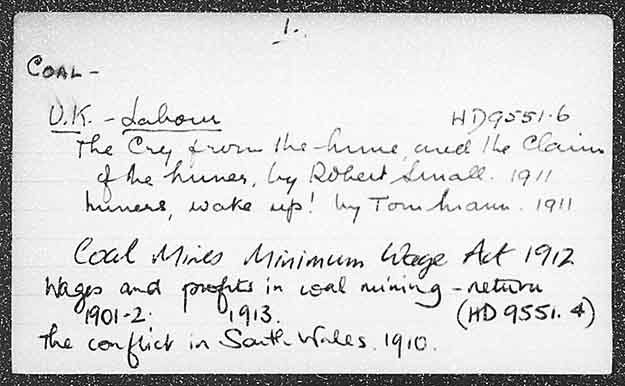 1.
COAL -
U.K. - Labour HD9551.6
The Cry from the mine, and the Claim
of the miner, by Robert Small. 1911
Miners, wake up! by Tom Mann. 1911
Coal Mines Minimum Wage Act 1912
Wages and profits in coal mining - return
1901-2. 1913. (HD 9551.4)
The conflict in South Wales. 1910.